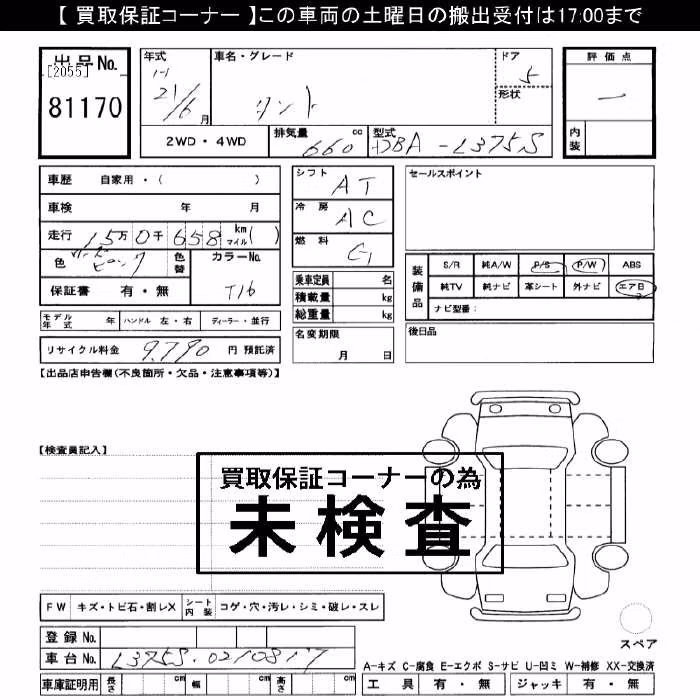 【 買取保証コーナー 】この車両の土曜日の搬出受付は17:00まで
出品No.
[2055]
81170
年式
21/6 月
車名・グレード
タント
ドア
5
形状
評価点
内装
2WD・4WD
排気量
660 cc
型式
DBA-L375S
車歴 自家用・( )
車検 年 月
走行 15万0千658 km マイル( )
色
色替
カラーNo.
T16
保証書 有・無
シフト
AT
冷房
AC
燃料
G
乗車定員 名
積載量 kg
総重量 kg
名変期限
月 日
セールスポイント
装備品
S/R 純A/W P/S P/W ABS
純TV 純ナビ 革シート 外ナビ エアB
ナビ型番:
後日品
モデル年式 年 ハンドル 左・右 ディーラー・並行
リサイクル料金 9,790 円 預託済
【出品店申告欄(不良箇所・欠品・注意事項等)】
【検査員記入】
買取保証コーナーの為
未検査
FW キズ・トビ石・割レX シート内装 コゲ・穴・汚レ・シミ・破レ・スレ
登録No.
車台No. L375S-0210817
車庫証明用 長さ cm 幅 cm 高さ cm
スペア
A-キズ C-腐食 E-エクボ S-サビ U-凹ミ W-補修 XX-交換済
工具 有・無 ジャッキ 有・無